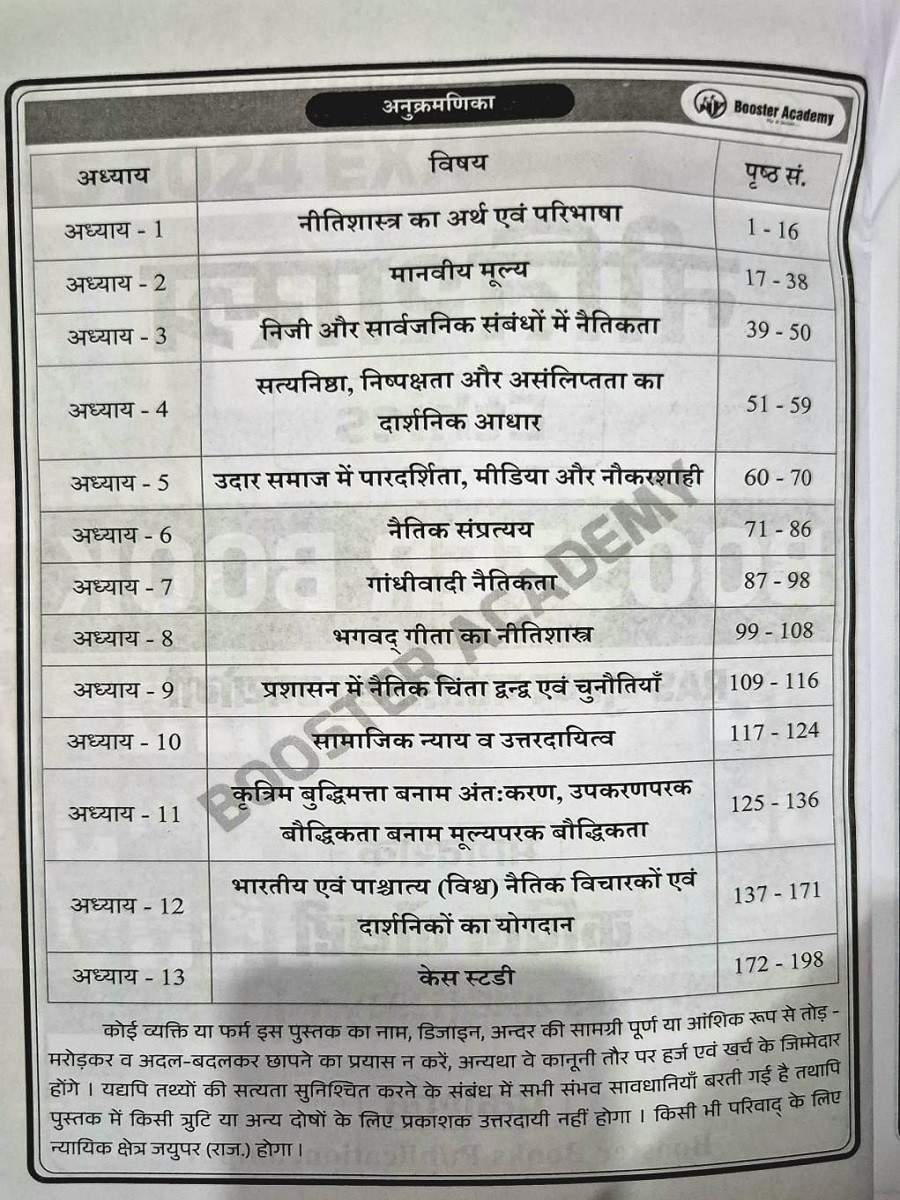 अनुक्रमणिका
Booster Academy
अध्याय विषय पृष्ठ सं.
अध्याय - 1 नीतिशास्त्र का अर्थ एवं परिभाषा 1 - 16
अध्याय - 2 मानवीय मूल्य 17 - 38
अध्याय - 3 निजी और सार्वजनिक संबंधों में नैतिकता 39 - 50
अध्याय - 4 सत्यनिष्ठा, निष्पक्षता और असंलिप्तता का 51 - 59
दार्शनिक आधार
अध्याय - 5 उदार समाज में पारदर्शिता, मीडिया और नौकरशाही 60 - 70
अध्याय - 6 नैतिक संप्रत्यय 71 - 86
अध्याय - 7 गांधीवादी नैतिकता 87 - 98
अध्याय - 8 भगवद् गीता का नीतिशास्त्र 99 - 108
अध्याय - 9 प्रशासन में नैतिक चिंता द्वन्द्व एवं चुनौतियाँ 109 - 116
अध्याय - 10 सामाजिक न्याय व उत्तरदायित्व 117 - 124
अध्याय - 11 कृत्रिम बुद्धिमत्ता बनाम अंत:करण, उपकरणपरक 125 - 136
बौद्धिकता बनाम मूल्यपरक बौद्धिकता
अध्याय - 12 भारतीय एवं पाश्चात्य (विश्व) नैतिक विचारकों एवं 137 - 171
दार्शनिकों का योगदान
अध्याय - 13 केस स्टडी 172 - 198
BOOSTER ACADEMY
कोई व्यक्ति या फर्म इस पुस्तक का नाम, डिजाइन, अन्दर की सामग्री पूर्ण या आंशिक रूप से तोड़ -
मरोड़कर व अदल-बदलकर छापने का प्रयास न करें, अन्यथा वे कानूनी तौर पर हर्ज एवं खर्च के जिम्मेदार
होंगे । यद्यपि तथ्यों की सत्यता सुनिश्चित करने के संबंध में सभी संभव सावधानियाँ बरती गई है तथापि
पुस्तक में किसी त्रुटि या अन्य दोषों के लिए प्रकाशक उत्तरदायी नहीं होगा । किसी भी परिवाद् के लिए
न्यायिक क्षेत्र जयुपर (राज.) होगा ।